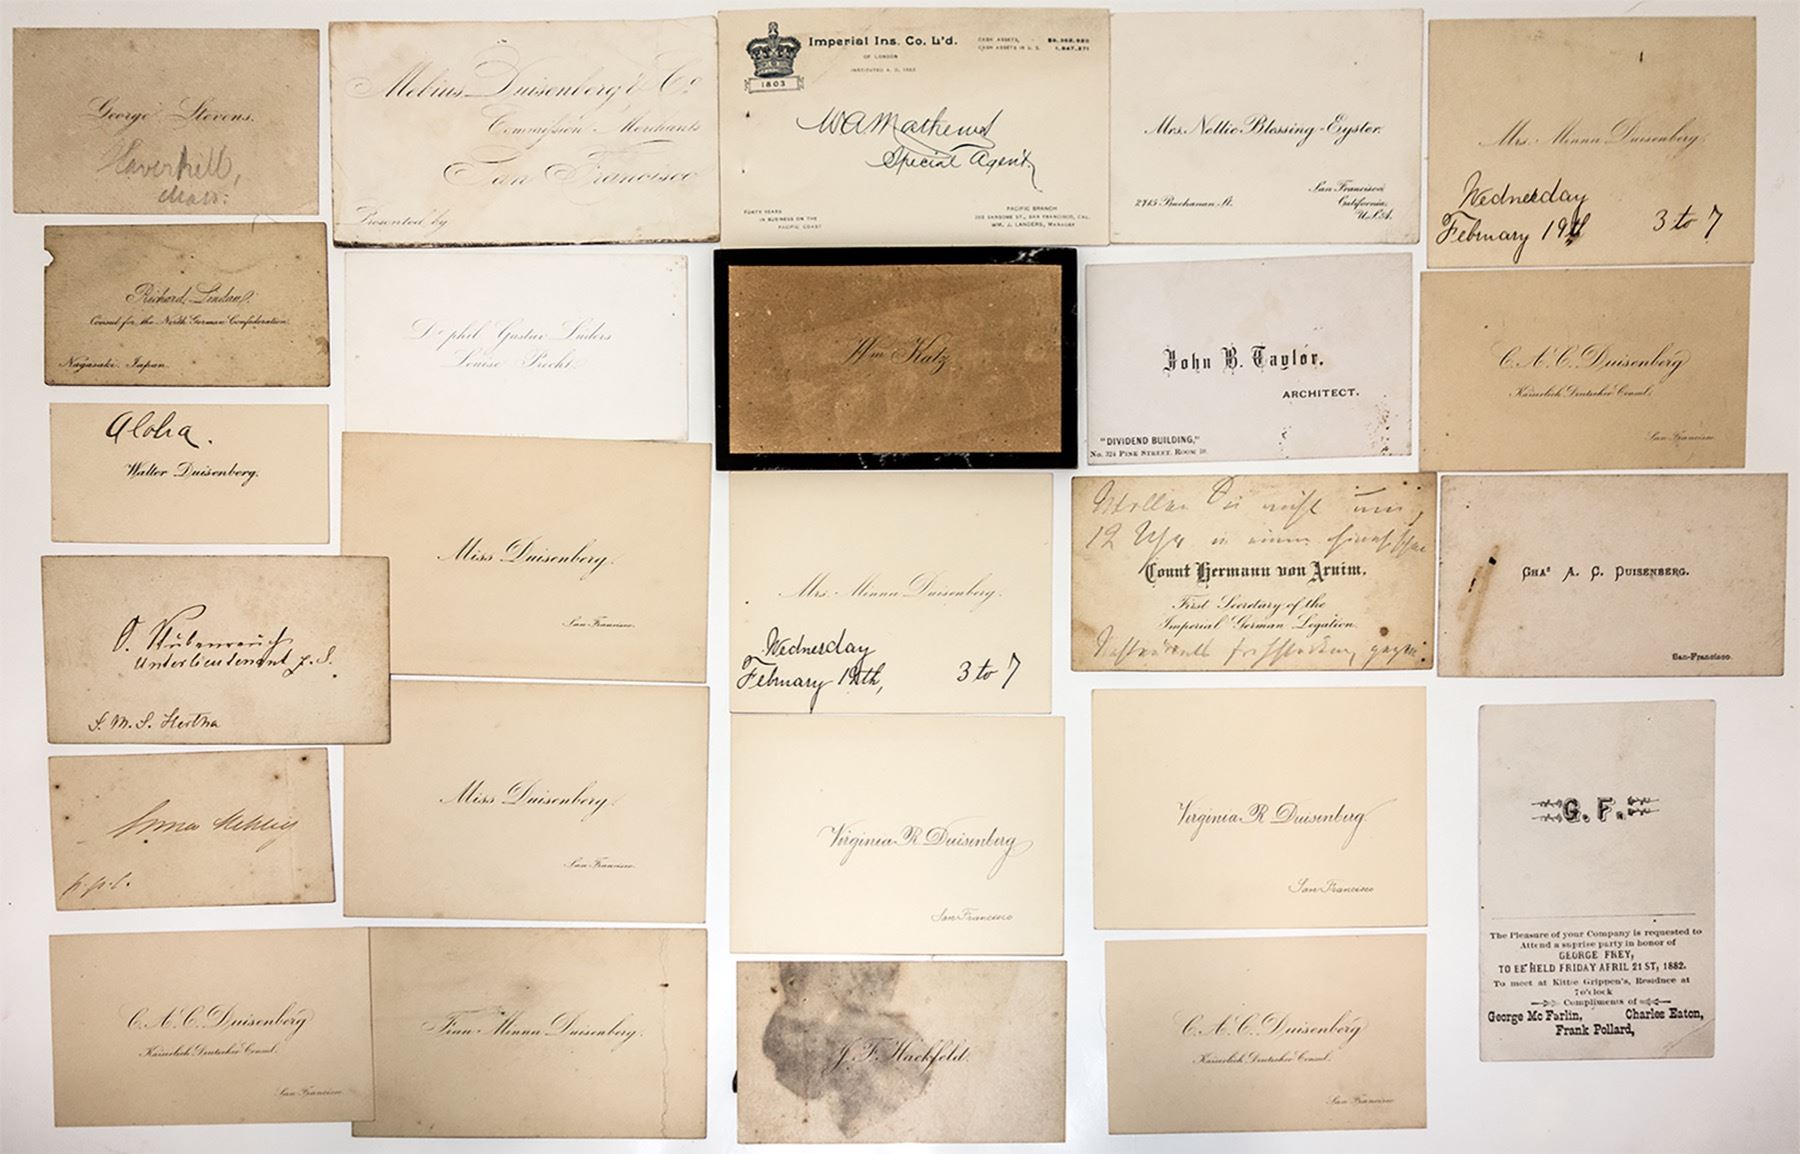 George Stevens.
Haverhill,
Mass:
Mebius Duisenberg & Co.
Commission Merchants
San Francisco
Presented by
1803
Imperial Ins. Co. L't'd.
OF LONDON
INSTITUTED A. D. 1803
CASH ASSETS,
CASH ASSETS IN U. S.
W A Mathews
Special Agent,
FORTY YEARS
IN BUSINESS ON THE
PACIFIC COAST
PACIFIC BRANCH
SANSOME ST., SAN FRANCISCO, CAL.
WM. J. LANDERS, MANAGER
Mrs. Nellie Blessing-Eyster.
2715 Buchanan St.
San Francisco
California,
U.S.A.
Mrs. Minna Duisenberg.
Wednesday
February 19th 3 to 7
Richard Lindau.
Consul for the North German Confederation.
Nagasaki. Japan.
Dr phil Gustav Lüders
Louise Precht
Wm Katz
John B. Taylor.
ARCHITECT.
"DIVIDEND BUILDING,"
No. 324 PINE STREET. ROOM
C. A. C. Duisenberg
Kaiserlich Deutscher Consul.
San Francisco
Aloha.
Walter Duisenberg.
Miss Duisenberg.
San Francisco.
Mrs. Minna Duisenberg.
Wednesday
February 19th, 3 to 7
Wollen Sie nicht um
12 Uhr in einem
Count Hermann von Arnim.
First Secretary of the
Imperial German Legation.
Chas A. C. Duisenberg.
San-Francisco.
Unterlieutenant z. S.
S. M. S. Hertha
Miss Duisenberg.
San Francisco.
Virginia R Duisenberg
San Francisco
Virginia R Duisenberg
San Francisco
G. F.
The Pleasure of your Company is requested to
Attend a suprise party in honor of
GEORGE FREY,
TO BE HELD FRIDAY APRIL 21ST, 1882.
To meet at Kittie Grippen's, Residnce at
7 o'clock
Compliments of
George Mc Farlin, Charles Eaton,
Frank Pollard,
p.p.c.
C. A. C. Duisenberg
Kaiserlich Deutscher Consul.
San Francisco
Frau Minna Duisenberg.
J. F. Hackfeld.
C. A. C. Duisenberg
Kaiserlich Deutscher Consul.
San Francisco